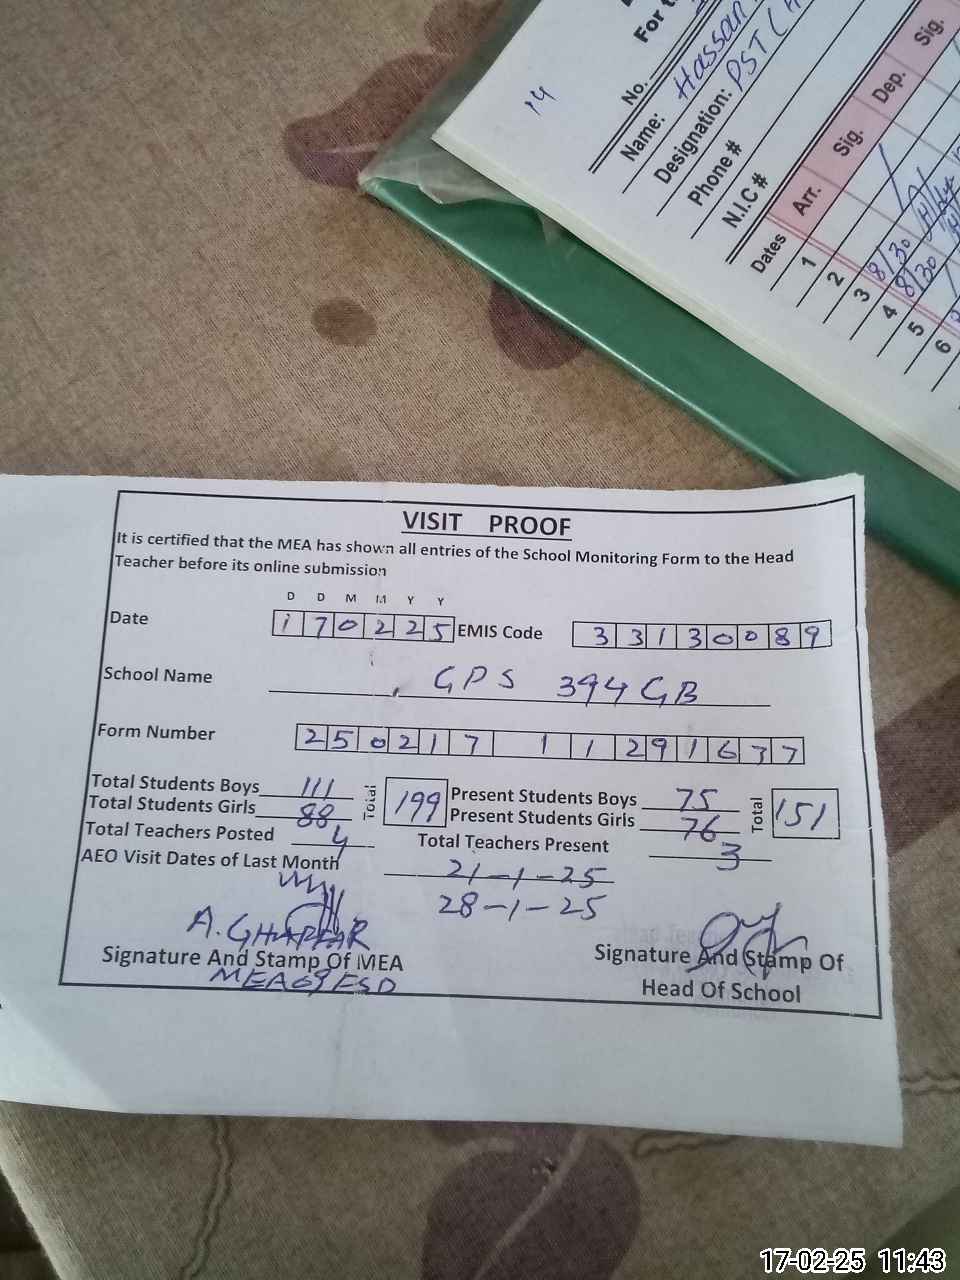 14
For
No.
Name: Hassan
Designation: PST
Phone #
N.I.C #
Dates Arr. Sig. Dep. Sig.
1
2
3 8/30
4 8/30
5
6
VISIT PROOF
It is certified that the MEA has shown all entries of the School Monitoring Form to the Head
Teacher before its online submission
D D M M Y Y
Date 1 7 0 2 2 5 EMIS Code 3 3 1 3 0 0 8 9
School Name GPS 394 GB
Form Number 2 5 0 2 1 7 1 1 2 9 1 6 3 7
Total Students Boys 111 Total 199 Present Students Boys 75 Total 151
Total Students Girls 88 Present Students Girls 76
Total Teachers Posted 4 Total Teachers Present 3
AEO Visit Dates of Last Month 21-1-25
28-1-25
A. GHAFFAR
Signature And Stamp Of MEA Signature And Stamp Of
MEA69 FSD Head Of School
17-02-25 11:43